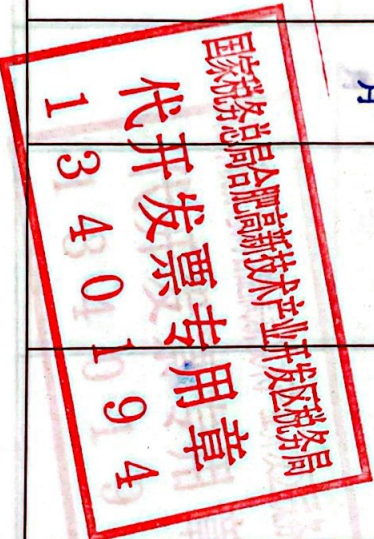 月
国家税务总局合肥高新技术产业开发区税务局
代开发票专用章
1340194